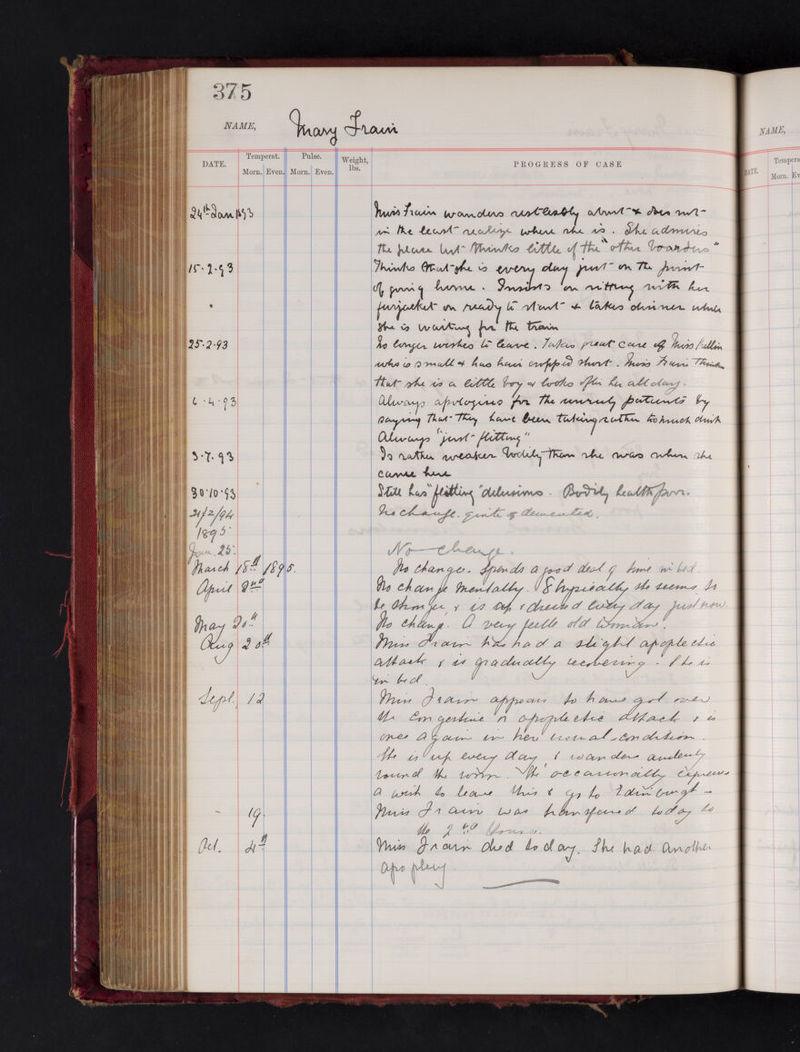 375
NAME, Mary Frain
DATE. Temperat. Pulse. Weight, lbs. PROGRESS OF CASE
Morn. Even. Morn. Even.
24th Jan 1893 Miss Frain wanders restlessly about & does not
in the least realize where she is. She admires
the place but thinks little of the "other boarders"
15.2.93 Thinks that she is every day just on the point
of going home. Insists on sitting with her
furjacket on ready to start & takes dinner while
She is waiting for the train
25.2.93 No longer wishes to leave. Takes great care of Miss
who is small & has hair cropped short. Miss Frain thinks
that she is a little boy & looks after her all day.
6.4.93 Always apologises for the unruly patients by
saying that they have been taking rather too much drink
Always "just flitting"
3.7.93 Is rather weaker bodily than she was when she
came here
30.10.93 Still has "flitting" delusions. Bodily health poor.
21/2/94 No change. quite demented.
1895
Jan. 25. No change.
March 18th 1895. No change. Spends a good deal of time in bed
April 2nd No change mentally. Physically she seems to
be stronger, & is up & dressed every day just now
May 20th No change. A very feeble old woman.
Aug 20th Miss Frain has had a slight apoplectic
attack & is gradually recovering. She is
in bed.
Sept. 12 Miss Frain appears to have got over
the congestive or apoplectic attack & is
once again in her usual condition.
She is up every day, & wanders
round the room. She occasionally expresses
a wish to leave this & go to Edinburgh
- 19. Miss Frain was transferred today to
the 2nd House.
Oct. 4th Miss Frain died today. She had another
apoplexy
NAME,
DATE. Tempera
Morn. Ev